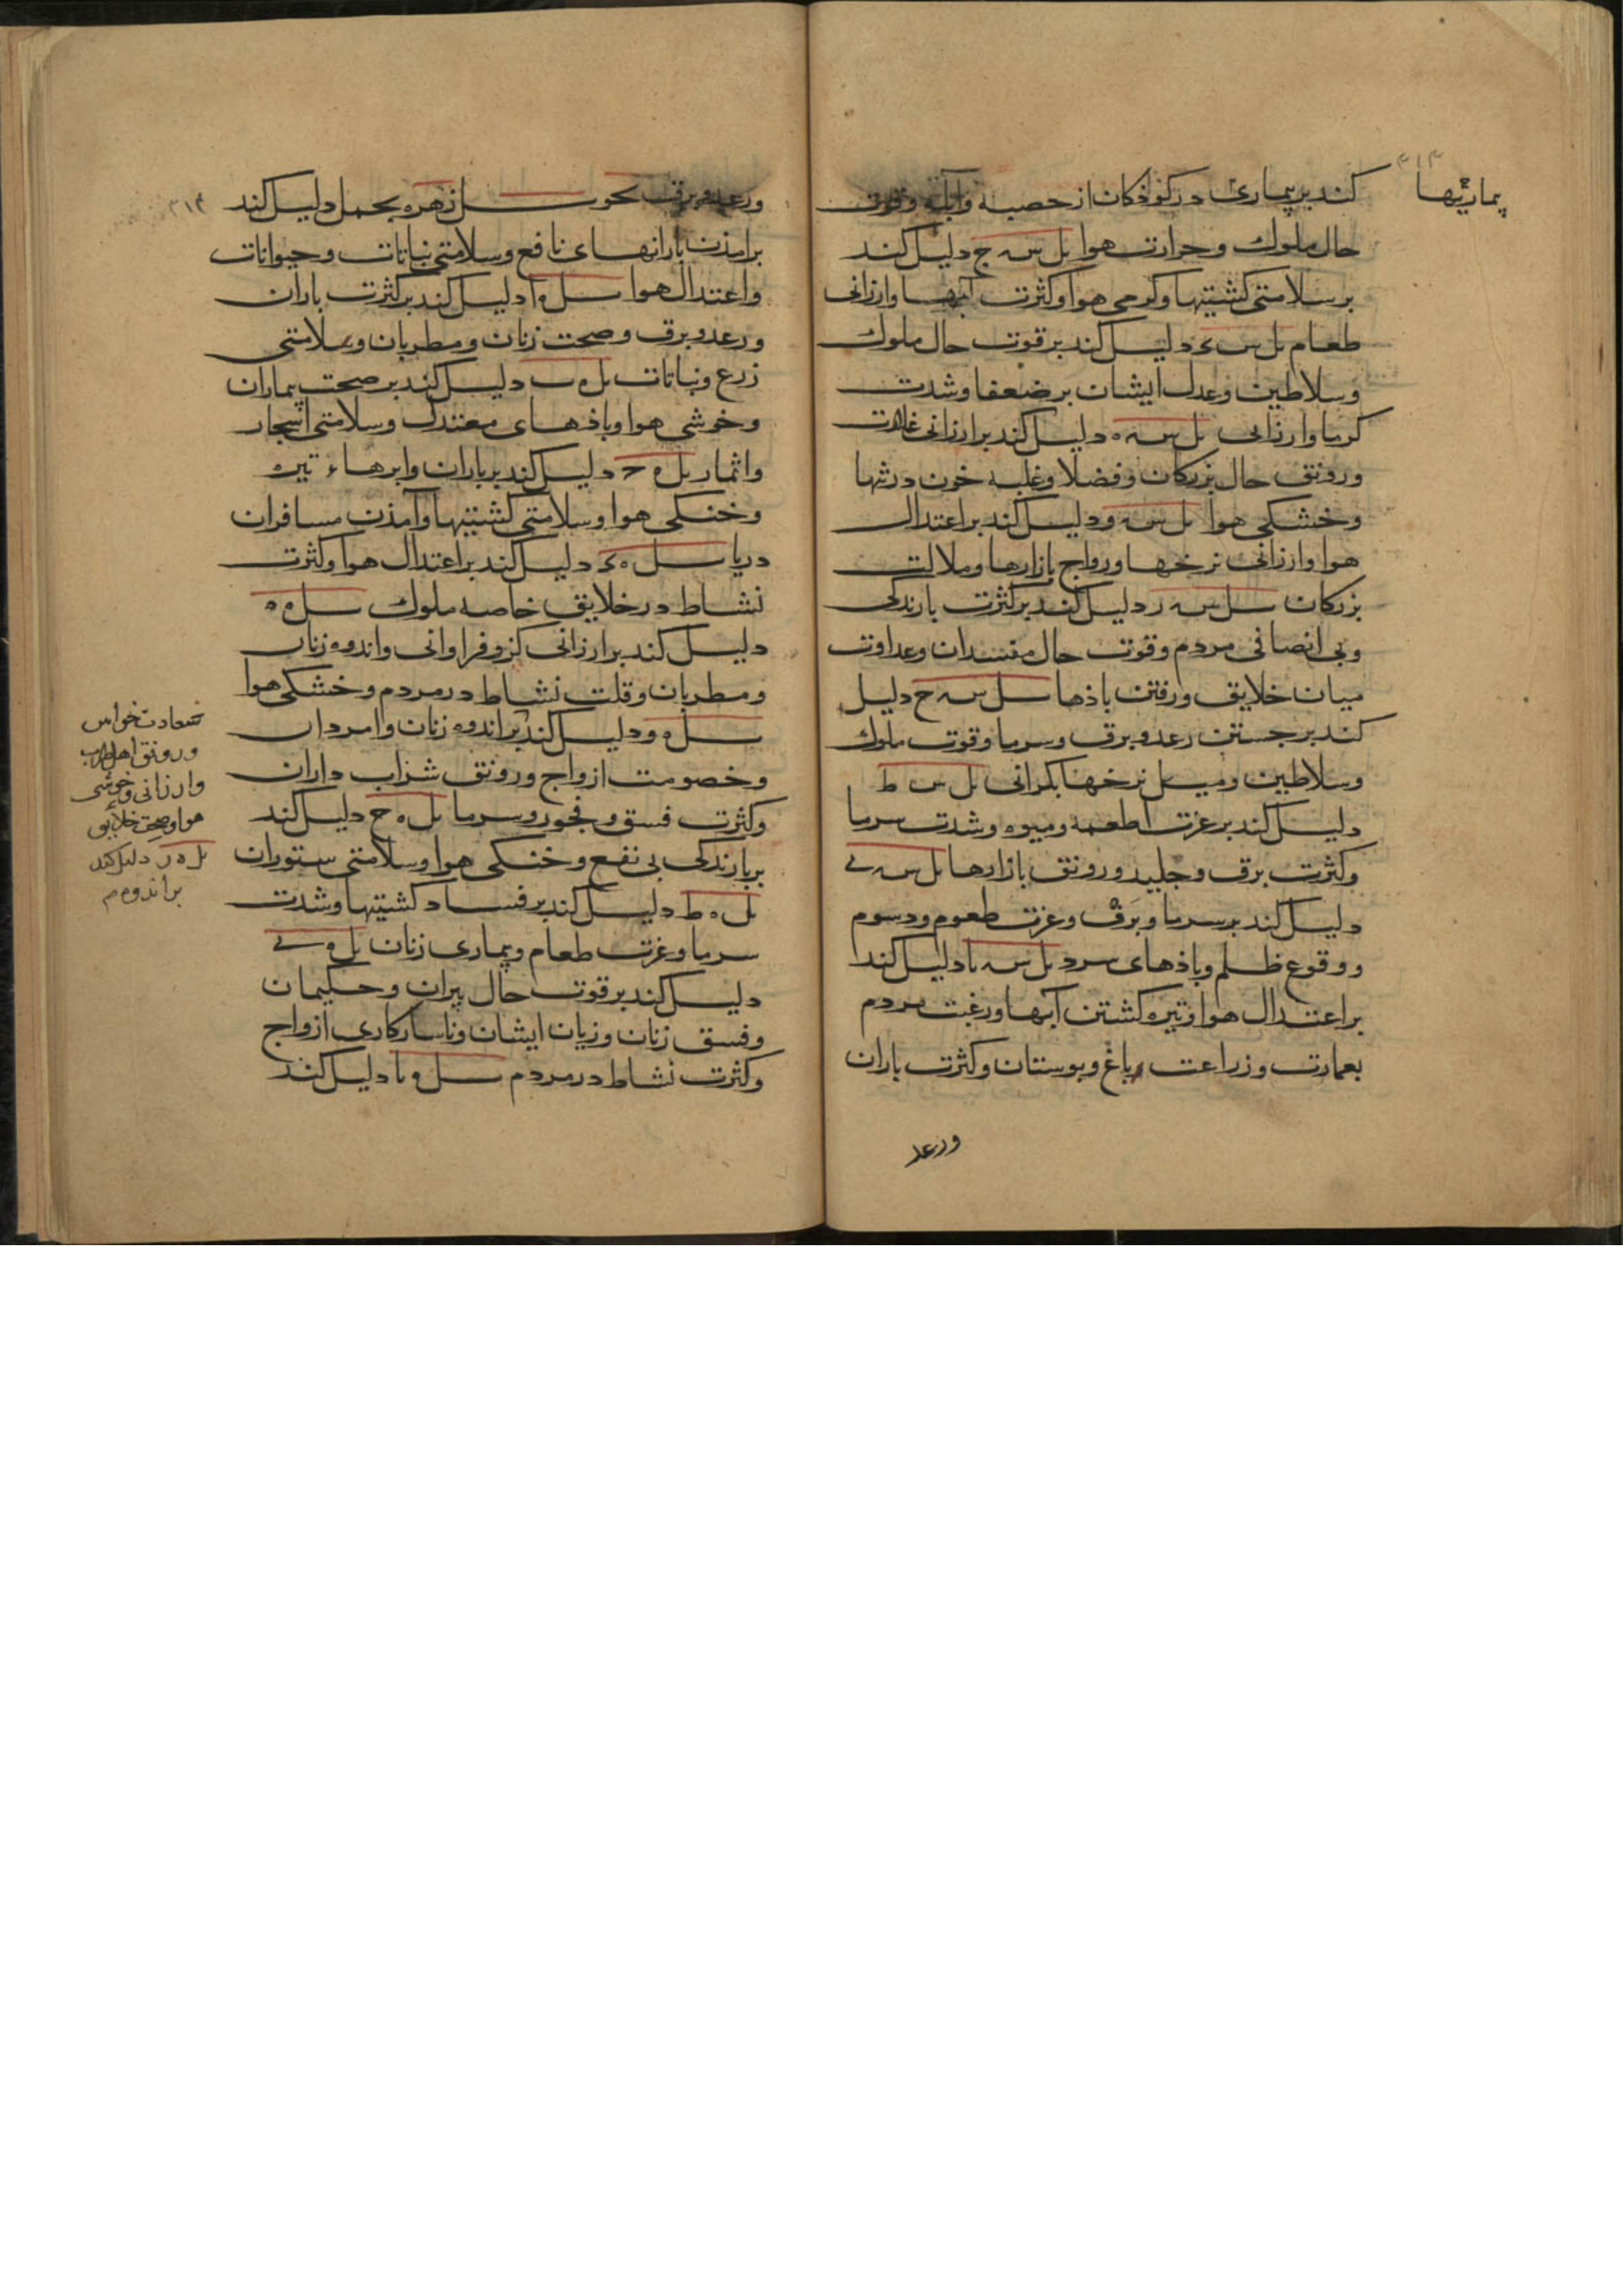 ۳۱۳
بیماریها
کند بر بیماری در کوذکان از حصبه وآبله وقوت
حال ملوك وحرارت هوا ىل س ج دلیل کند
بر سلامتی کشتیها وکرمی هوا وکثرت آبها وارزانی
طعام ىل س ء دلیل کند بر قوت حال ملوك
وسلاطین وعدل ایشان بر ضعفا وشدت
کرما وارزانی ىل س ه دلیل کند بر ارزانی
ورونق حال بزرکان وفضلا وغلبه خون در تنها
وخشکی هوا ىل س و دلیل کند بر اعتدال
هوا وارزانی نرخها ورواج بازارها وملالت
بزرکان ىل س ر دلیل کند بر کثرت بارندکی
وبی انصافی مردم وقوت حال مفسدان وعداوت
میان خلایق ورفتن باذها ىل س ح دلیل
کند بر جستن رعد وبرق وسرما وقوت ملوك
وسلاطین ومیل نرخها بکرانی ىل س ط
دلیل کند بر عزت اطعمه ومیوه وشدت سرما
وکثرت برق وجلید ورونق بازارها ىل س ى
دلیل کند بر سرما وبرف وعزت طعوم ودسوم
ووقوع ظلم وباذهای سرد ىل س ىا دلیل کند
بر اعتدال هوا وتیره کشتن آبها ورغبت مردم
بعمارت وزراعت وباغ وبوستان وکثرت باران
ورعد
۳۱۴
ورعد وبرق زهره بحمل دلیل کند
بر امذن بارانهای نافع وسلامتی نباتات وحیوانات
واعتدال هوا ىل ه ا دلیل کند بر کثرت باران
ورعد وبرق وصحت زنان ومطربان وسلامتی
زرع ونباتات ىل ه ب دلیل کند بر صحت بیماران
وخوشی هوا وباذهای معتدل وسلامتی اشجار
واثمار ىل ه ح دلیل کند بر باران وابرهاء تیره
وخنکی هوا وسلامتی کشتیها وآمذن مسافران
دریا ىل ه ء دلیل کند بر اعتدال هوا وکثرت
نشاط در خلایق خاصه ملوك ىل ه ه
دلیل کند بر ارزانی وفراوانی واندوه زنان
ومطربان وقلت نشاط در مردم وخشکی هوا
ىل ه و دلیل کند بر اندوه زنان وامردان
وخصومت ازواج ورونق شراب داران
وکثرت فسق وفجور وسرما ىل ه ح دلیل کند
بر بارندکی بی نفع وخنکی هوا وسلامتی ستوران
ىل ه ط دلیل کند بر فساد کشتیها وشدت
سرما وعزت طعام وبیماری زنان ىل ه ى
دلیل کند بر قوت حال پیران وحکیمان
وفسق زنان وزیان ایشان وناسازکاری ازواج
وکثرت نشاط در مردم ىل ه ىا دلیل کند
سعادت خواص
ورونق اهل طرب
وارزانی وخوشی
هوا وصحت خلایق
ىل ه ر دلیل کند
بر اندوه م